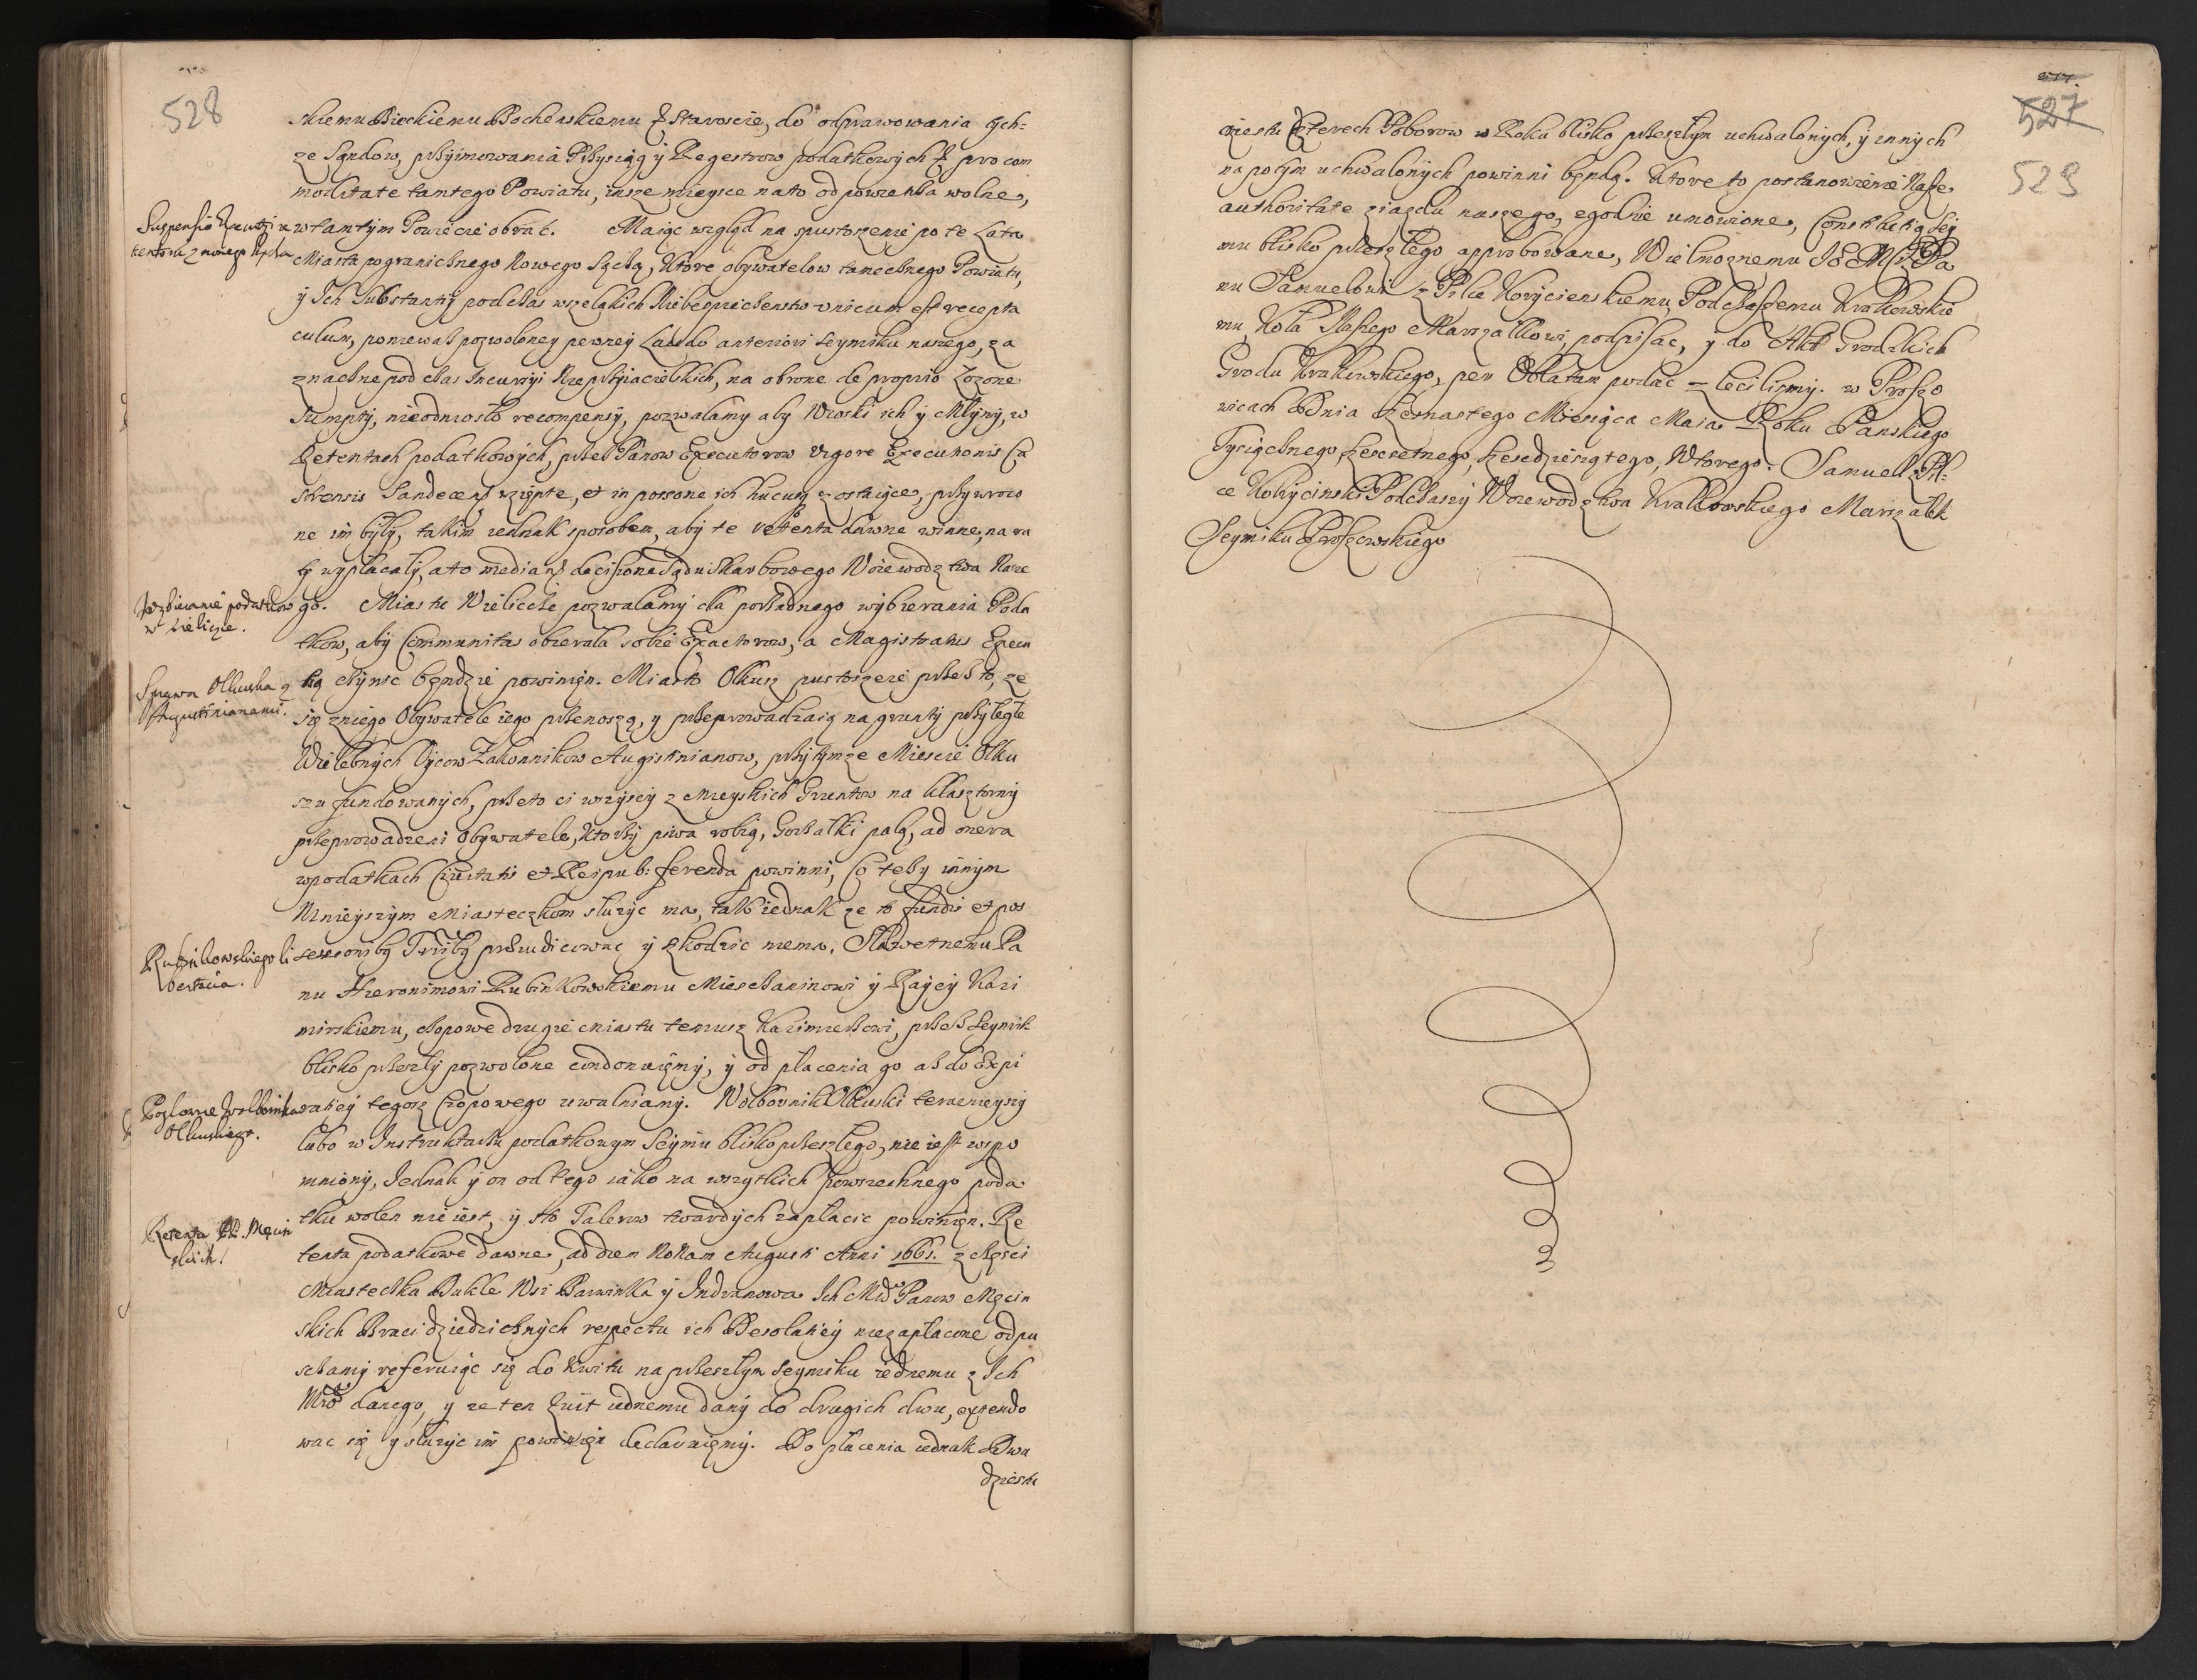 528
skiemu Bieckiemu Bochenskiemu Staroscie, do odprawowania tych=
ze Sądow, przyimowania Przysiąg y Regestrow podatkowych pro com
moditate tamtego Powiatu, insze mieysce na to od powietrza wolne,
Suspensia Executij re
tentorū z nowego Sącza
w tamtym Powiecie obrać. Maiąc wzgląd na spustoszenie po te Lata
Miasta pogranicznego Nowego Sącza, ktore obywatelow tamecznego Powiatu,
y Ich Substantij podczas wszelakich Niebespieczenstw unicum est recepta
culum, poniewasz pozwoloney pewney Laudo anteriori Seymiku naszego, za
znaczne pod czas Incursyi Nieprzyiacielskich, na obrone de proprio Łozone
Sumpty, nieodniosło recompensy, pozwalamy aby Wioski ich y Młyny, w
Retentach podatkowych, przez Panow Executorow vigore Executionis Ca
strensis Sandecen̄ wzięte, et in possone ich hucusq zostaiące, przywroco
ne im były, takim iednak sposobem, aby te retenta dawne winne, na ra
ty wypłacały, a to median̄ decisione Sądu Skarbowego Woiewodztwa Nasze
Wybieranie podatkow
w Wieliczce.
go. Miastu Wieliczce pozwalamy dla porządnego wybierania Poda
tkow, aby Communitas obierała sobie Exactorow, a Magistratus Execu
Sprawa Olkuska z
Augustinianami.
tią czynic będzie powinien. Miasto Olkusz pustoszeie przez to, ze
się z niego Obywatele iego przenoszą, y przeprowadzaią na grunty przyległe
Wielebnych Oycow Zakonnikow Augustinianow, przy tymze Miescie Olku
szu fundowanych, przeto ci wszyscy z Mieyskich Gruntow na klasztorny
przeprowadzeni Obywatele, ktorzy piwa robią, Gorzałki palą, ad onera
w podatkach Civitatis et Reipub: ferenda powinni, Co tesz y innym
Mnieyszym Miasteczkom słuzyc ma, tak iednak ze to fundi et pos
Rubinkowskiego li
bertacia.
sessionibq Iuribq praeiudicowac y szkodzic niema. Sławetnemu Pa
nu Hieronimowi Rubinkowskiemu Mieszczaninowi y Raycy Kazi
mirskiemu, czopowe drugie Miastu temusz Kazimierzowi, przez Seymik
blisko przeszły pozwolone condonuiemy, y od płacenia go asz do Expi
Pogłowne Wolbornika
Olkuskiego.
ratiey tegosz Czopowego uwalniamy. Wolbornik Olkuski teraznieyszy
lubo w Instruktarzu podatkowym Seymu blisko przeszłego, nie iest wspo
mniony, Iednak y on od tego iako na wszytkich powszechnego poda
tku wolen nie iest, y sto Talerow twardych zapłacic powinien. Re
Retenta PP. Męcin
skich.
tenta podatkowe dawne, ad diem Nonam Augusti Anni 1661. z części
Miasteczka Dukle Wsi Barwinka y Indranowa Ich Mciow Panow Męcin
skich Braci dziedzicznych respectu ich Desolatiey niezapłacone odpu
szczamy referuiąc się do kwitu na przeszłym Seymiku iednemu z Ich
Mciow danego, y ze ten kwit iednemu dany do drugich dwu, extendo
wac się y słuzyc im powinien declaruiemy. Do płacenia iednak Dwu
dziestu
527
529
dziestu Czterech Poborow w Roku blisko przeszłym uchwalonych, y innych
na potym uchwalonych powinni będą. Ktore to postanowienie Nasze,
authoritate ziazdu naszego, zgodnie umowione, Constitutią Sey
mu blisko przeszłego approbowane, Wielmoznemu JE Mści Pa
nu Samuelowi z Pilce Korycienskiemu, Podczaszemu Krakowskie
mu, Koła Naszego Marszałkowi, podpisac, y do Akt Grodzkich
Grodu Krakowskiego, per Oblatam podac zlecilismy. w Proszo
wicach Dnia Szesnastego Miesiąca Maia Roku Panskiego
Tysiącznego, szescsetnego, szescdziesiątego, Wtorego. Samuel z Pil=
ce Korycinski Podczaszy Woiewodztwa Krakowskiego Marszałek
Seymiku Proszowskiego